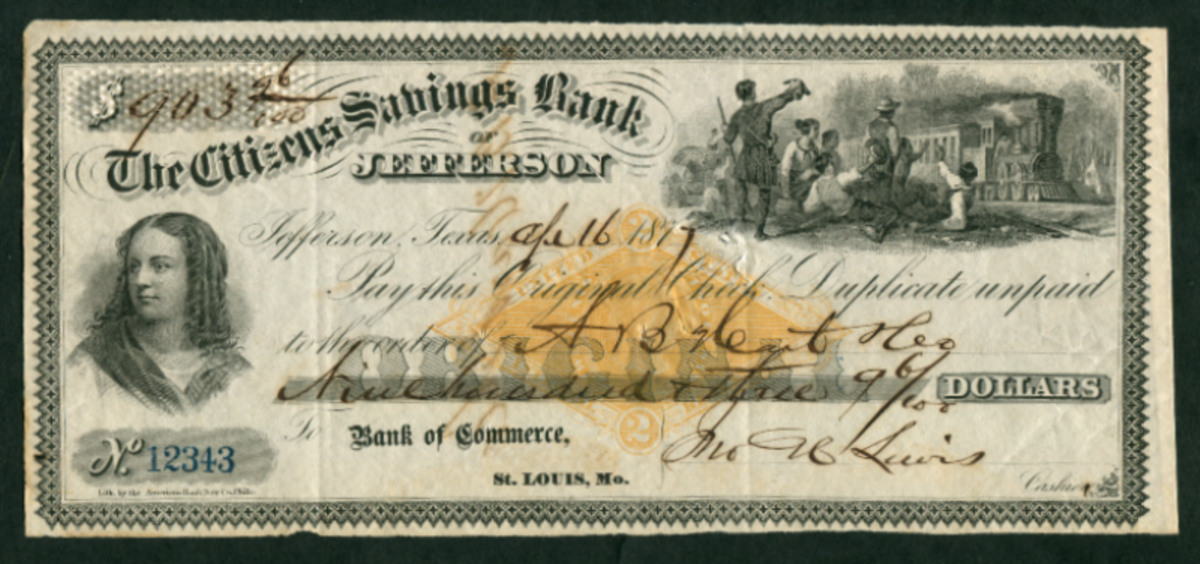 $ 903 96/100
The Citizens Savings Bank
OF
JEFFERSON
Jefferson, Texas, 16 187
Pay this Original Check Duplicate unpaid
to the order of A B
ORIGINAL
Nine hundred & three 96/100 DOLLARS
To Bank of Commerce,
St. LOUIS, Mo.
2
Jno Lewis
Cashier
No. 12343
Lith. by the American Bank Note Co. Phila.